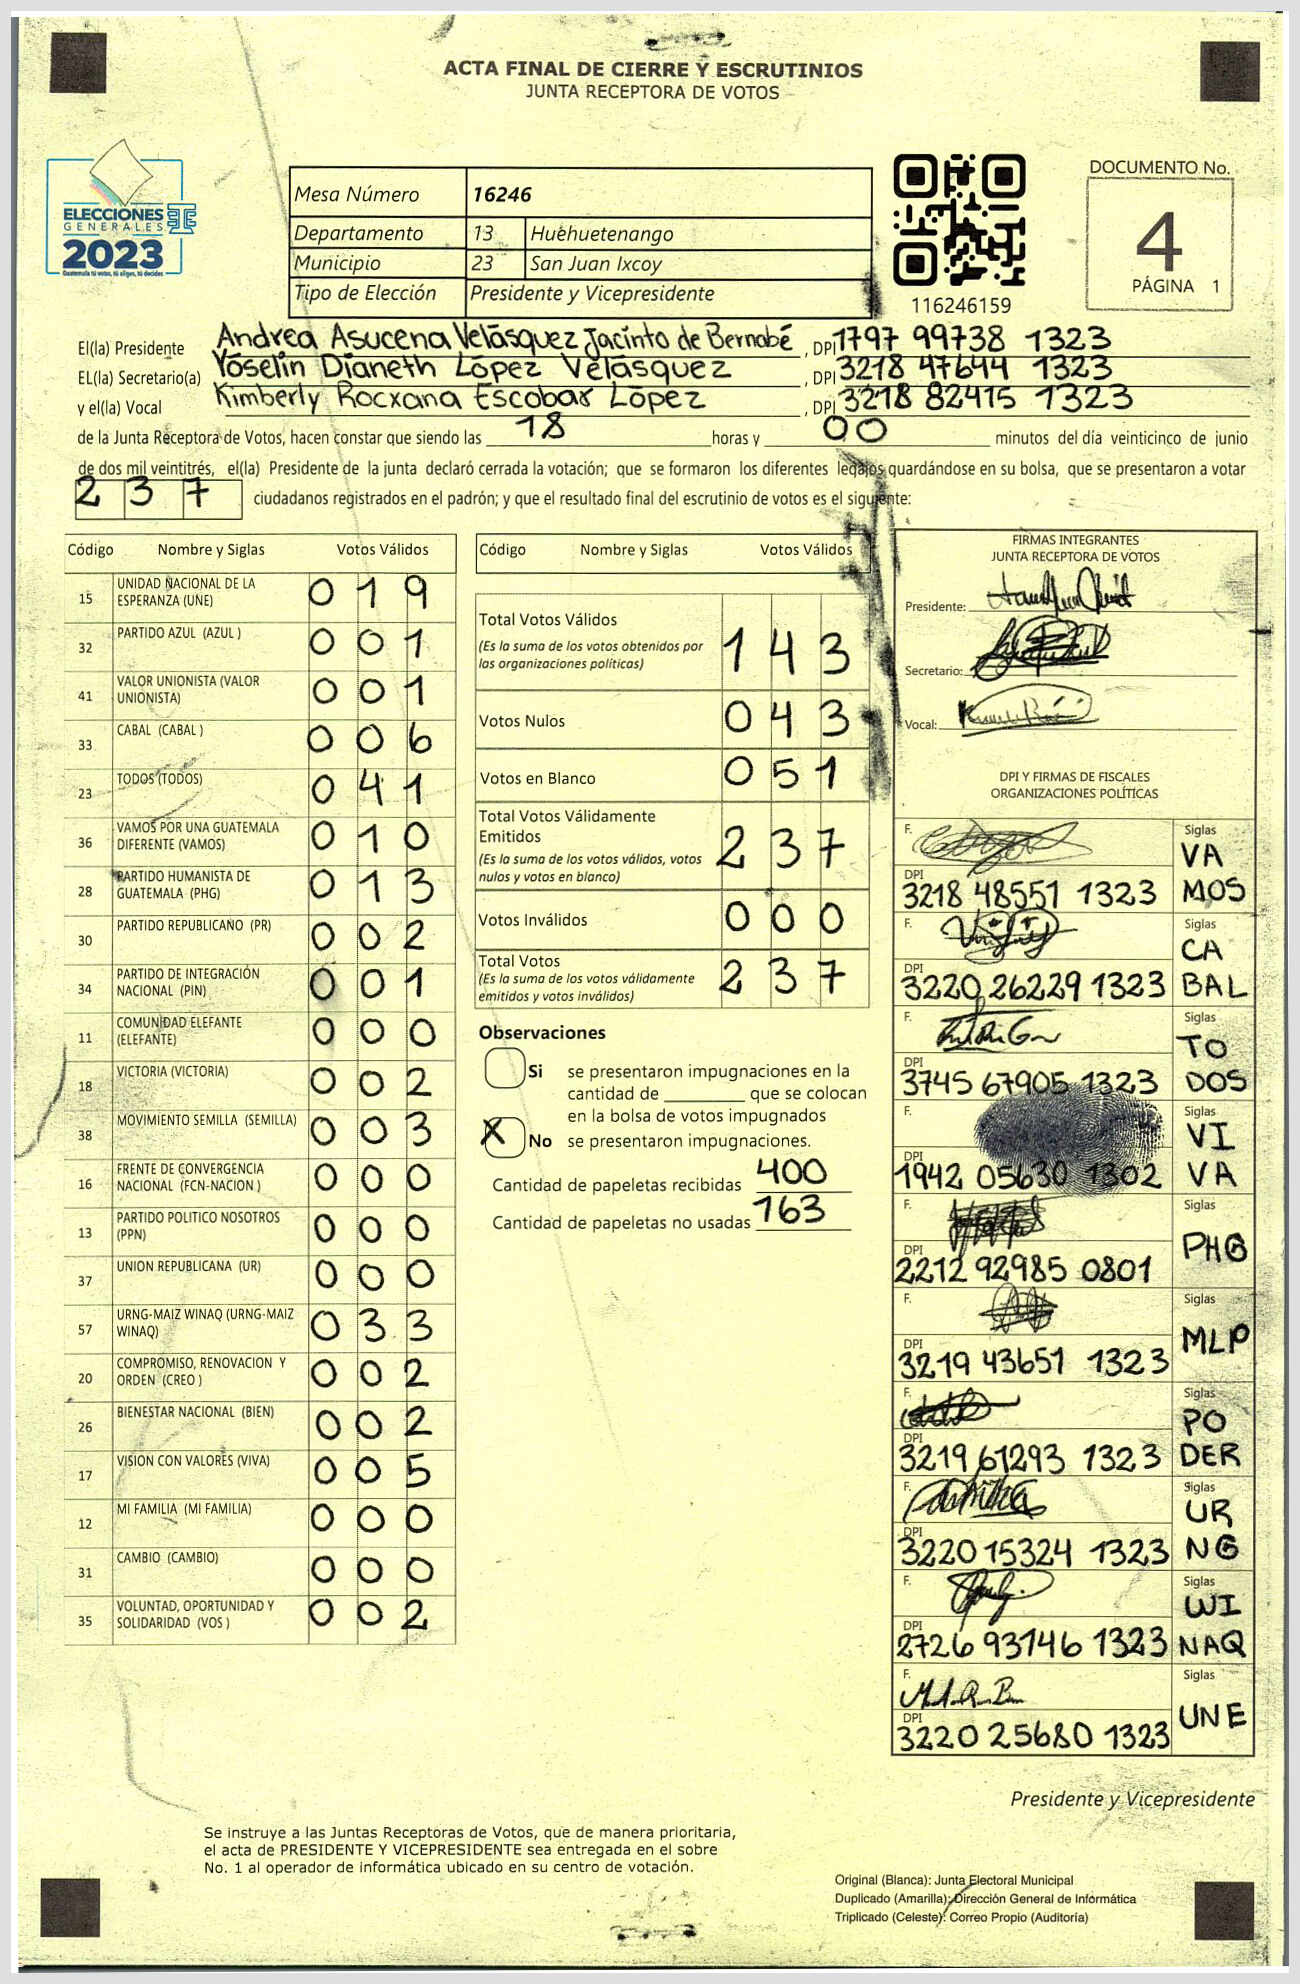 ACTA FINAL DE CIERRE Y ESCRUTINIOS
JUNTA RECEPTORA DE VOTOS
ELECCIONES
GENERALES
2023
Guatemala tú votas, tú eliges, tú decides
Mesa Número 16246
Departamento 13 Huehuetenango
Municipio 23 San Juan Ixcoy
Tipo de Elección Presidente y Vicepresidente
116246159
DOCUMENTO No.
4
PÁGINA 1
El(la) Presidente Andrea Asucena Velásquez Jacinto de Bernabé , DPI 1797 99738 1323
EL(la) Secretario(a) Yoselin Dianeth López Velásquez , DPI 3218 47644 1323
y el(la) Vocal Kimberly Rocxana Escobar López , DPI 3218 82415 1323
de la Junta Receptora de Votos, hacen constar que siendo las 18 horas y 00 minutos del día veinticinco de junio
de dos mil veintitrés, el(la) Presidente de la junta declaró cerrada la votación; que se formaron los diferentes legajos guardándose en su bolsa, que se presentaron a votar
237 ciudadanos registrados en el padrón; y que el resultado final del escrutinio de votos es el siguiente:
Código Nombre y Siglas Votos Válidos
15 UNIDAD NACIONAL DE LA ESPERANZA (UNE) 019
32 PARTIDO AZUL (AZUL ) 001
41 VALOR UNIONISTA (VALOR UNIONISTA) 001
33 CABAL (CABAL ) 006
23 TODOS (TODOS) 041
36 VAMOS POR UNA GUATEMALA DIFERENTE (VAMOS) 010
28 PARTIDO HUMANISTA DE GUATEMALA (PHG) 013
30 PARTIDO REPUBLICANO (PR) 002
34 PARTIDO DE INTEGRACIÓN NACIONAL (PIN) 001
11 COMUNIDAD ELEFANTE (ELEFANTE) 000
18 VICTORIA (VICTORIA) 002
38 MOVIMIENTO SEMILLA (SEMILLA) 003
16 FRENTE DE CONVERGENCIA NACIONAL (FCN-NACION ) 000
13 PARTIDO POLITICO NOSOTROS (PPN) 000
37 UNION REPUBLICANA (UR) 000
57 URNG-MAIZ WINAQ (URNG-MAIZ WINAQ) 033
20 COMPROMISO, RENOVACION Y ORDEN (CREO ) 002
26 BIENESTAR NACIONAL (BIEN) 002
17 VISION CON VALORES (VIVA) 005
12 MI FAMILIA (MI FAMILIA) 000
31 CAMBIO (CAMBIO) 000
35 VOLUNTAD, OPORTUNIDAD Y SOLIDARIDAD (VOS ) 002
Código Nombre y Siglas Votos Válidos
Total Votos Válidos 143
(Es la suma de los votos obtenidos por
las organizaciones políticas)
Votos Nulos 043
Votos en Blanco 051
Total Votos Válidamente
Emitidos 237
(Es la suma de los votos válidos, votos
nulos y votos en blanco)
Votos Inválidos 000
Total Votos 237
(Es la suma de los votos válidamente
emitidos y votos inválidos)
Observaciones
Si se presentaron impugnaciones en la
cantidad de ________ que se colocan
en la bolsa de votos impugnados
X No se presentaron impugnaciones.
Cantidad de papeletas recibidas 400
Cantidad de papeletas no usadas 163
FIRMAS INTEGRANTES
JUNTA RECEPTORA DE VOTOS
Presidente:
Secretario:
Vocal:
DPI Y FIRMAS DE FISCALES
ORGANIZACIONES POLÍTICAS
F. Siglas VA MOS
DPI 3218 48551 1323
F. Siglas CA BAL
DPI 3220 26229 1323
F. Siglas TO DOS
DPI 3745 67905 1323
F. Siglas VI VA
DPI 1942 05630 1302
F. Siglas PHG
DPI 2212 92985 0801
F. Siglas MLP
DPI 3219 43651 1323
F. Siglas PO DER
DPI 3219 61293 1323
F. Siglas UR NG
DPI 3220 15324 1323
F. Siglas WI NAQ
DPI 2726 93146 1323
F. Siglas UNE
DPI 3220 25680 1323
Presidente y Vicepresidente
Se instruye a las Juntas Receptoras de Votos, que de manera prioritaria,
el acta de PRESIDENTE Y VICEPRESIDENTE sea entregada en el sobre
No. 1 al operador de informática ubicado en su centro de votación.
Original (Blanca): Junta Electoral Municipal
Duplicado (Amarilla): Dirección General de Informática
Triplicado (Celeste): Correo Propio (Auditoría)